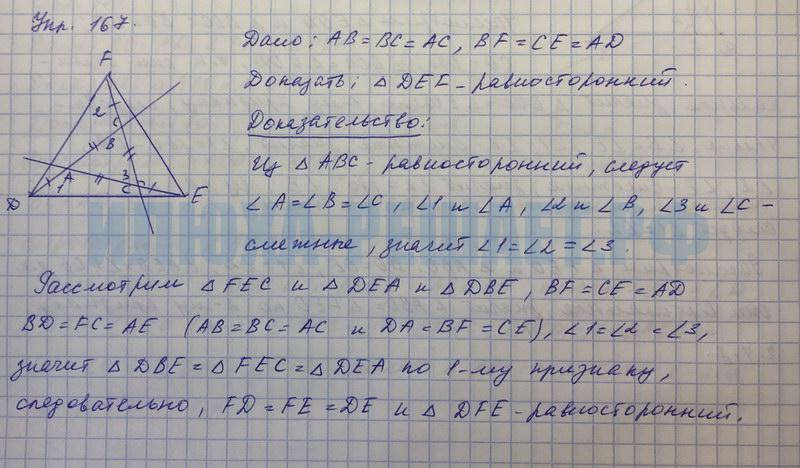 Упр. 167.
Дано: AB=BC=AC, BF=CE=AD
Доказать: △ DEF - равносторонний.
Доказательство:
Из △ ABC - равносторонний, следует
∠A=∠B=∠C, ∠1 и ∠A, ∠2 и ∠B, ∠3 и ∠C -
смежные, значит ∠1=∠2=∠3.
Рассмотрим △ FEC и △ DEA и △ DBE, BF=CE=AD
BD=FC=AE (AB=BC=AC и DA=BF=CE), ∠1=∠2=∠3,
значит △ DBE=△ FEC=△ DEA по 1-му признаку,
следовательно, FD=FE=DE и △ DFE-равносторонний.
F
2
C
B
A
1
3
C
D
E